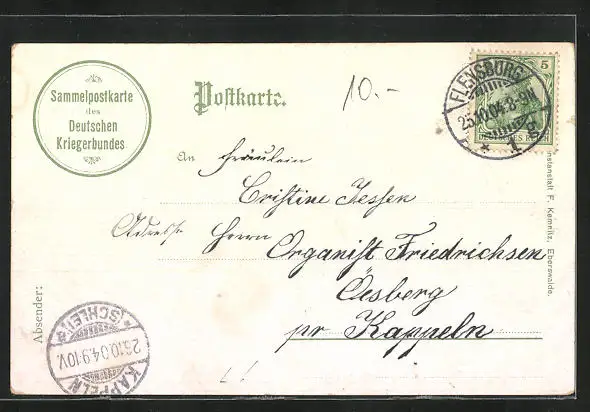 Sammelpostkarte
des
Deutschen
Kriegerbundes.
Postkarte.
10.-
5
DEUTSCHES REICH
FLENSBURG
25.10.04.8-9N
* 1
An Fräulein
Cristine Jessen
Adresse Herrn
Organist Friedrichsen
Oesberg
pr Kappeln
Absender:
KAPPELN
26.10.04.9-10V.
*(SCHLEI)a
Kunstanstalt F. Kemnitz, Eberswalde.